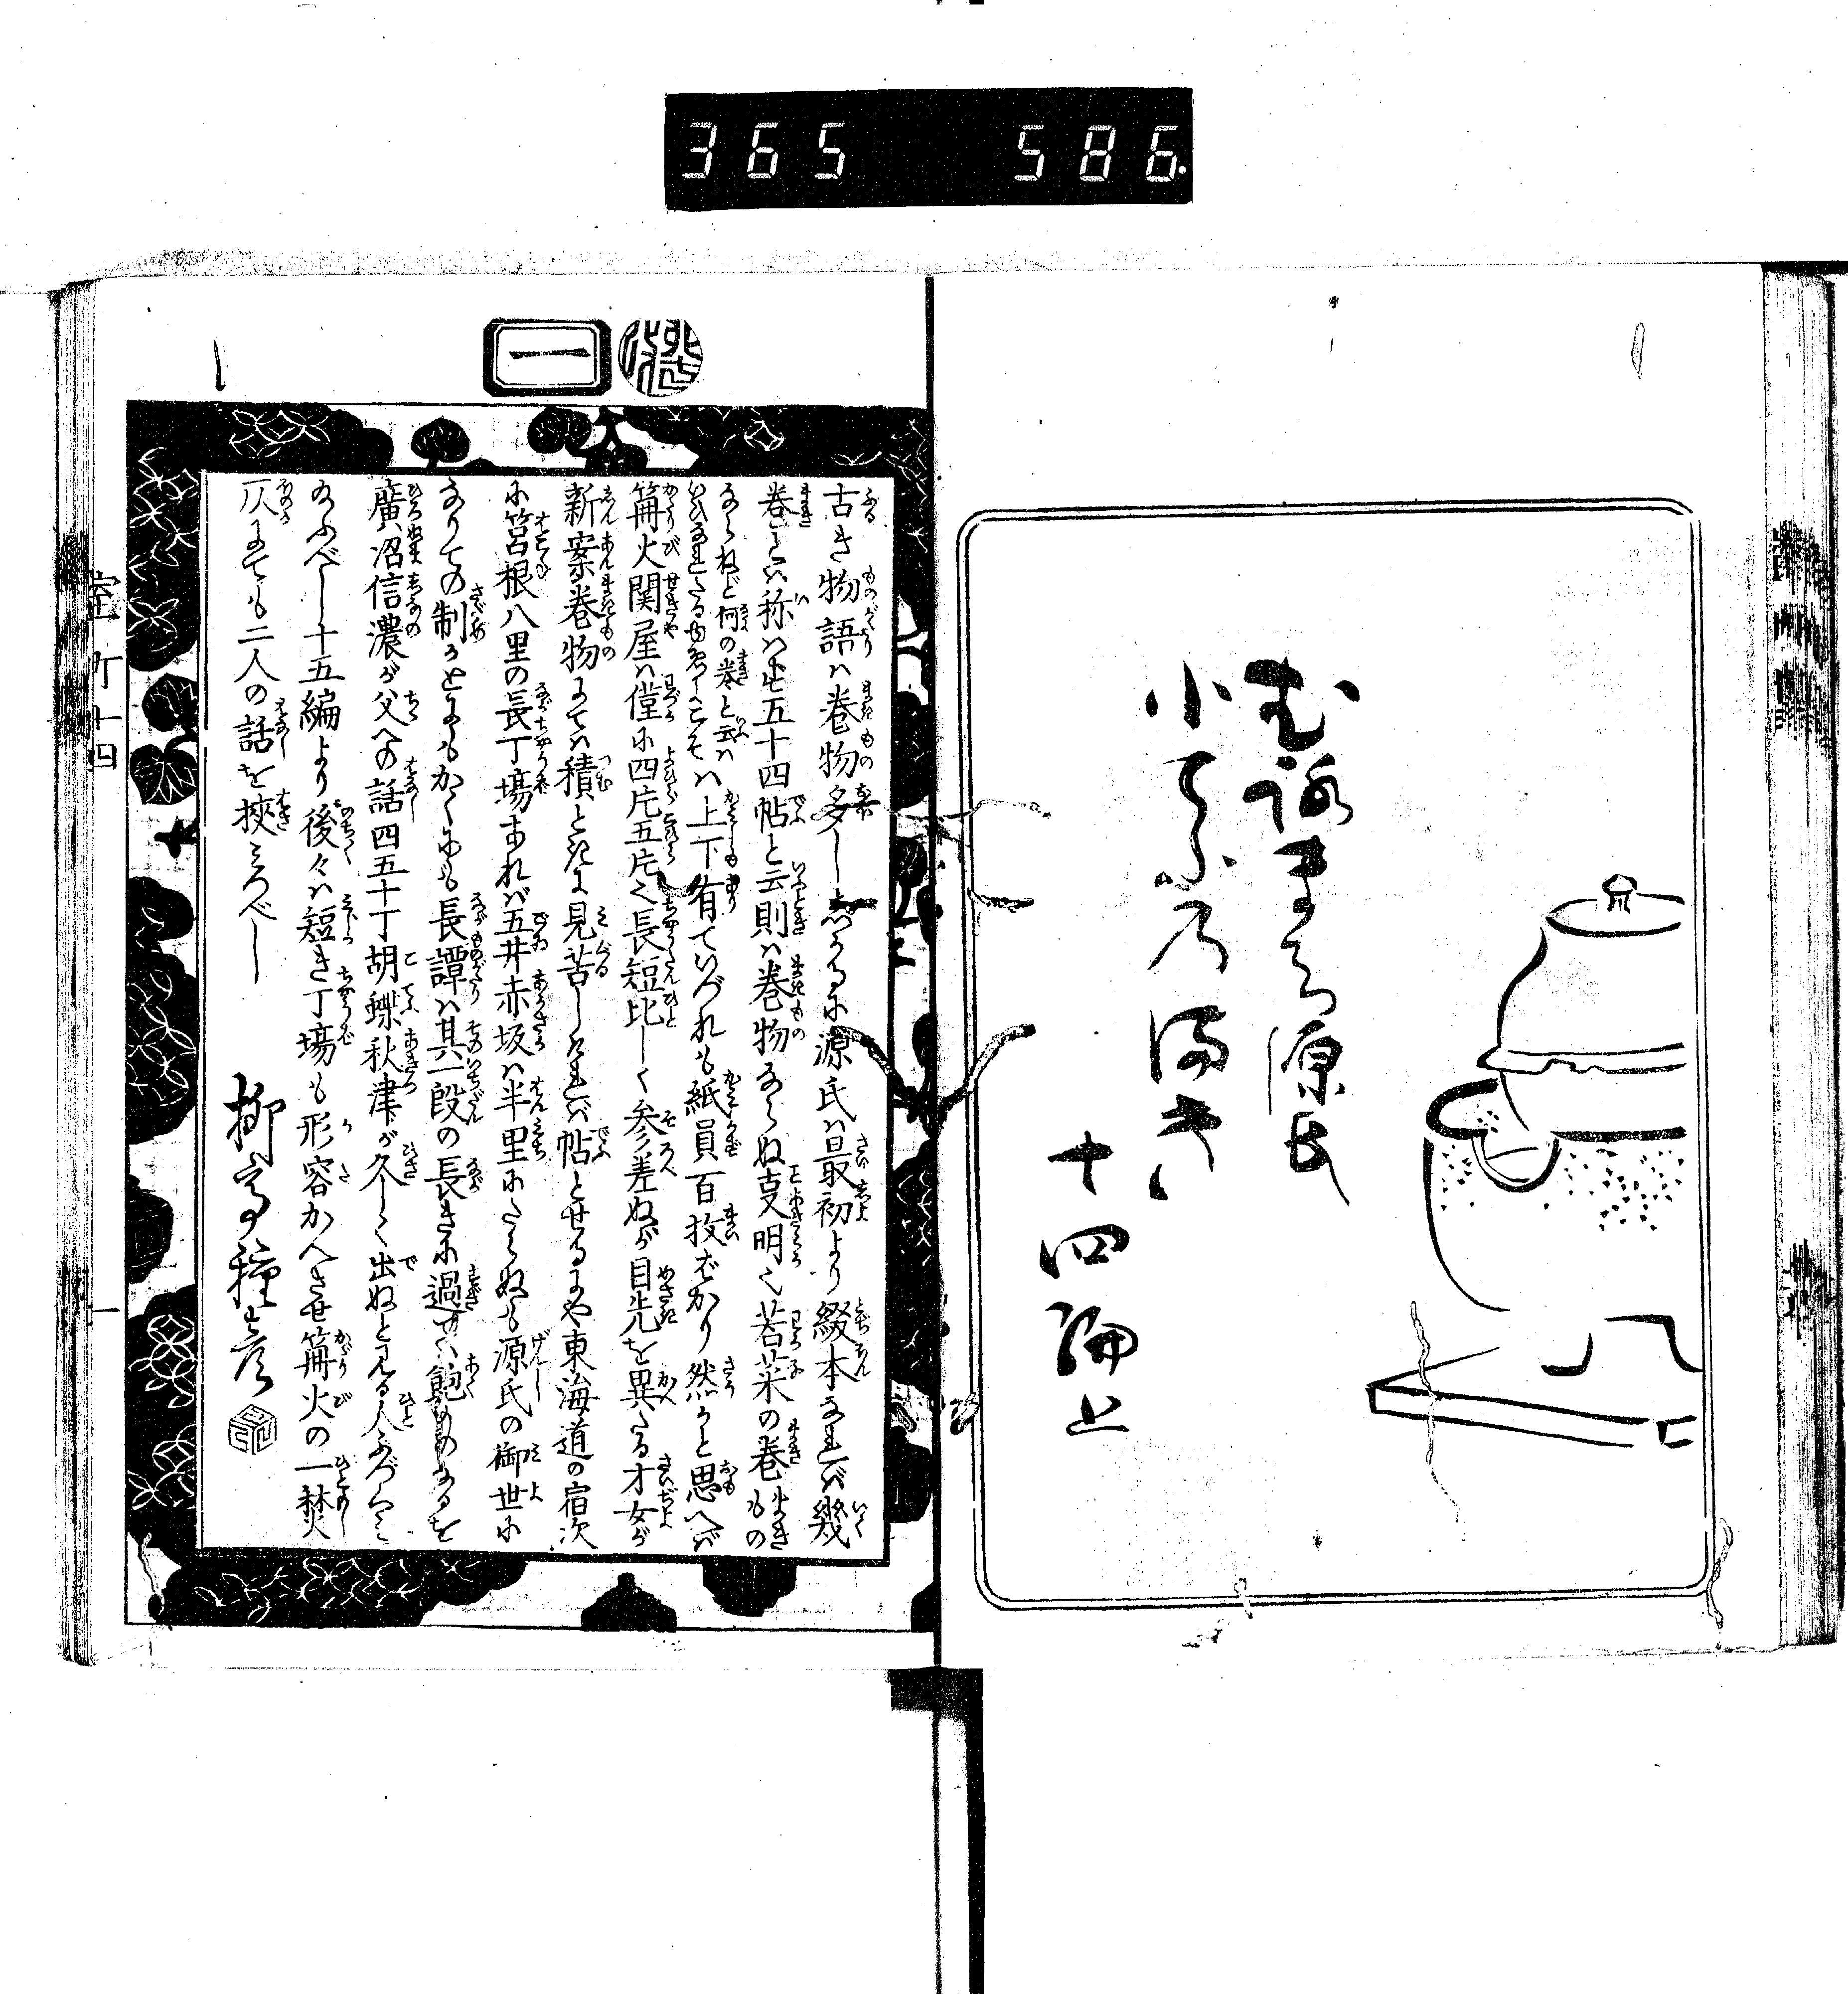 365 586.
むろまち源氏
小てふの満き
十四編上
一
古き物語ハ巻物多ししかるに源氏ハ最初より綴本なれバ幾
巻とハ称ハせ五十四帖と云則ハ巻物ならぬ支明し若菜の巻まきもの
ならねど何の巻と云ハ上下有ていづれも紙員百枚ばかり然かと思へバ
篝火関屋ハ僅に四片五片之長短比しく参差ぬが目先を異たる才女が
新案巻物にてハ積ときに見苦しけれバ帖とせるにや東海道の宿次
に筥根八里の長丁場あれバ五井赤坂ハ半里にたらぬも源氏の御世に
なりての制かとにもかくにも長譚ハ其一段の長きに過
廣沼信濃が父への話四五十丁胡蝶秋津が久しく出ぬと見る人
なふべし十五編より後々ハ短き丁場も形容かへさせ篝火の一焚
仄にても二人の話を挾みつべし
柳亭種彦
室町十四
一